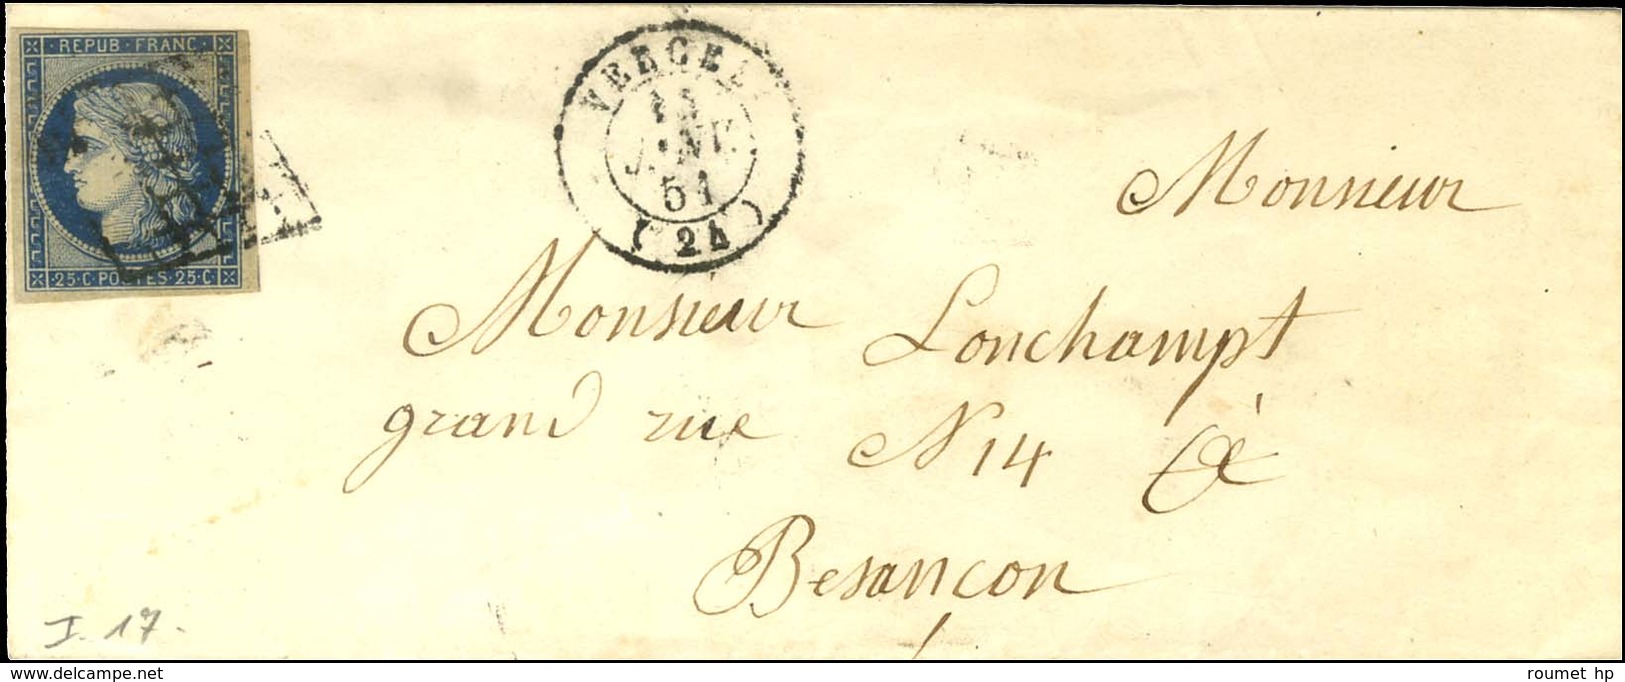 REPUB · FRANC ·
25 · C · POSTES · 25 · C ·
VERCEL
JANV.
51
(24)
Monsieur
Monsieur Lonchampt
grand rue N 14 à
Besançon
I. 17.
delcampe.net
roumet hp